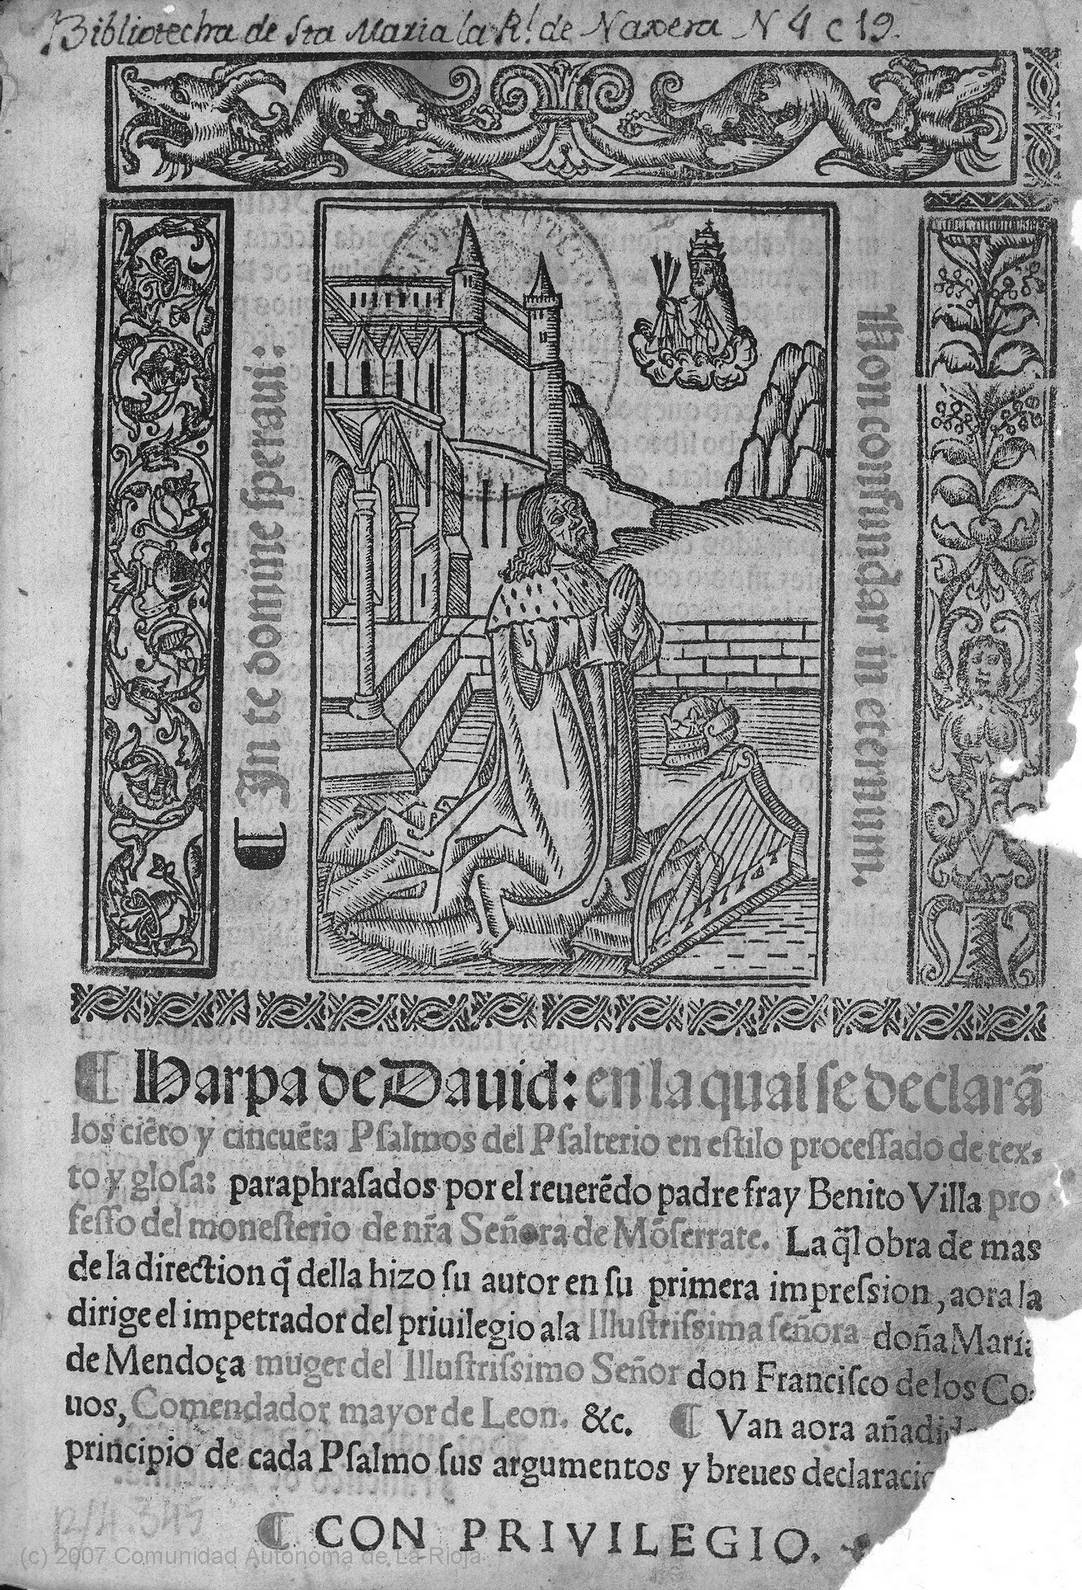 Bibliotecha de Sta Maria la Rl. de Naxera N 4 c 19.
¶ In te domine speraui:
Non confundar in eternum.
¶ Harpa de Dauid: en la qual se declarã
los ciẽto y cincuẽta Psalmos del Psalterio en estilo processado de tex-
to y glosa: paraphrasados por el reuerẽdo padre fray Benito Villa pro
fesso del monesterio de nr̃a Señora de Mõserrate. La q̃l obra de mas
de la direction q̃ della hizo su autor en su primera impression, aora la
dirige el impetrador del priuilegio ala Illustrissima señora doña Mari
de Mendoça muger del Illustrissimo Señor don Francisco de los Co
uos, Comendador mayor de Leon. &c. ¶ Van aora añadid
principio de cada Psalmo sus argumentos y breues declaracio
¶ CON PRIVILEGIO.
12/4.545
(c) 2007 Comunidad Autónoma de La Rioja